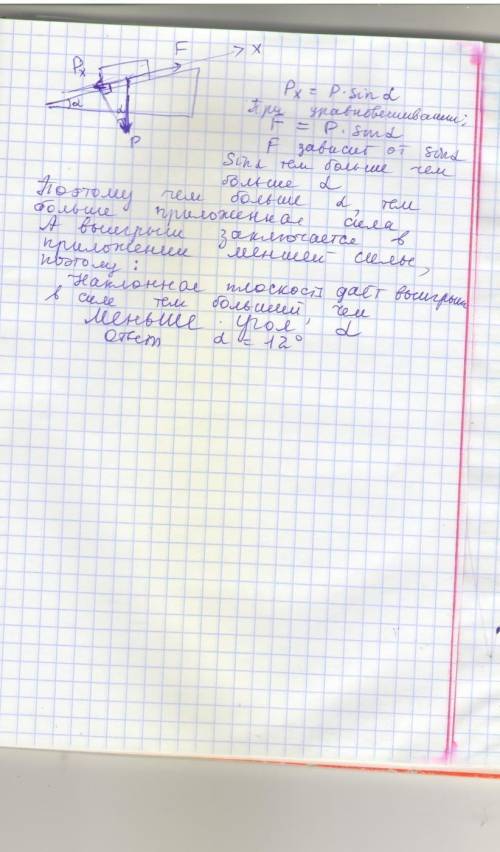 F
X
Px
α
α
P
Px = P·sinα
При уравновешивании;
F = P·sinα
F зависит от sinα
Sinα тем больше чем
больше α
Поэтому чем больше α, тем
больше приложенная сила
А выигрыш заключается в
приложении меншей силы,
поэтому:
Наклонная плоскость даёт выигрыш
в силе тем больший, чем
меньше угол α
Ответ α = 12°